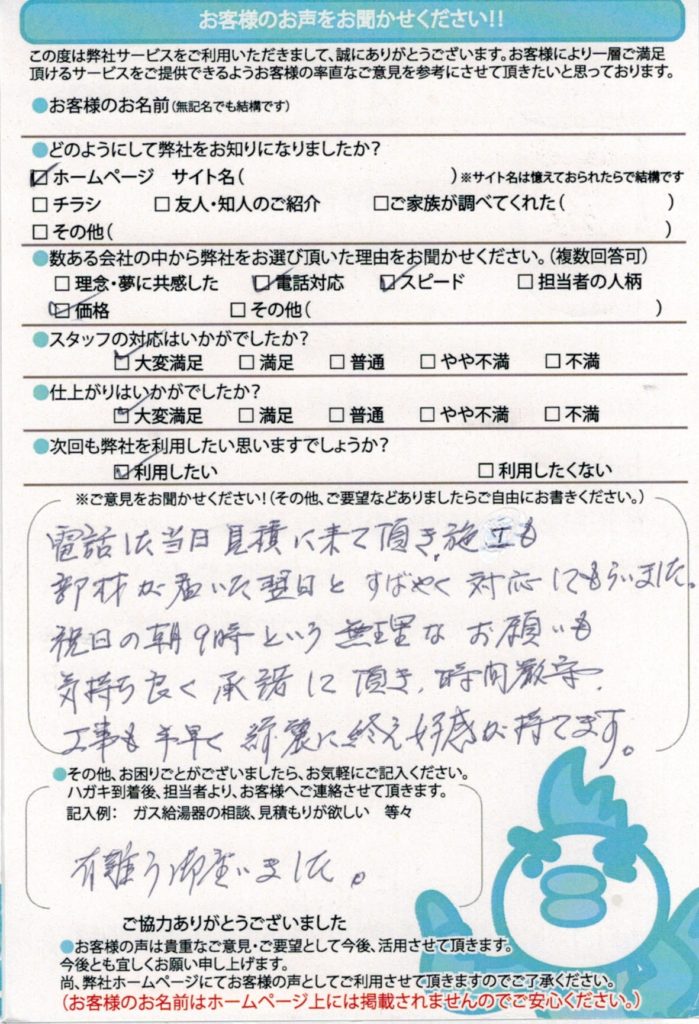 お客様のお声をお聞かせください!!
この度は弊社サービスをご利用いただきまして、誠にありがとうございます。お客様により一層ご満足
頂けるサービスをご提供できるようお客様の率直なご意見を参考にさせて頂きたいと思っております。
●お客様のお名前(無記名でも結構です)
●どのようにして弊社をお知りになりましたか?
☑ホームページ サイト名( )※サイト名は憶えておられたらで結構です
□チラシ □友人・知人のご紹介 □ご家族が調べてくれた( )
□その他( )
●数ある会社の中から弊社をお選び頂いた理由をお聞かせください。(複数回答可)
□理念・夢に共感した ☑電話対応 ☑スピード □担当者の人柄
☑価格 □その他( )
●スタッフの対応はいかがでしたか?
☑大変満足 □満足 □普通 □やや不満 □不満
●仕上がりはいかがでしたか?
☑大変満足 □満足 □普通 □やや不満 □不満
●次回も弊社を利用したい思いますでしょうか?
☑利用したい □利用したくない
※ご意見をお聞かせください!(その他、ご要望などありましたらご自由にお書きください。)
電話した当日見積に来て頂き、施工も
部材が届いた翌日とすばやく対応してもらいました。
祝日の朝9時という無理なお願いも
気持ち良く承諾して頂き、時間厳守、
工事も手早く綺麗に終え好感が持てます。
●その他、お困りごとがございましたら、お気軽にご記入ください。
ハガキ到着後、担当者より、お客様へご連絡させて頂きます。
記入例: ガス給湯器の相談、見積もりが欲しい 等々
有難う御座いました。
ご協力ありがとうございました
●お客様の声は貴重なご意見・ご要望として今後、活用させて頂きます。
今後とも宜しくお願い申し上げます。
尚、弊社ホームページにてお客様の声としてご利用させて頂きますのでご了承ください。
(お客様のお名前はホームページ上には掲載されませんのでご安心ください。)